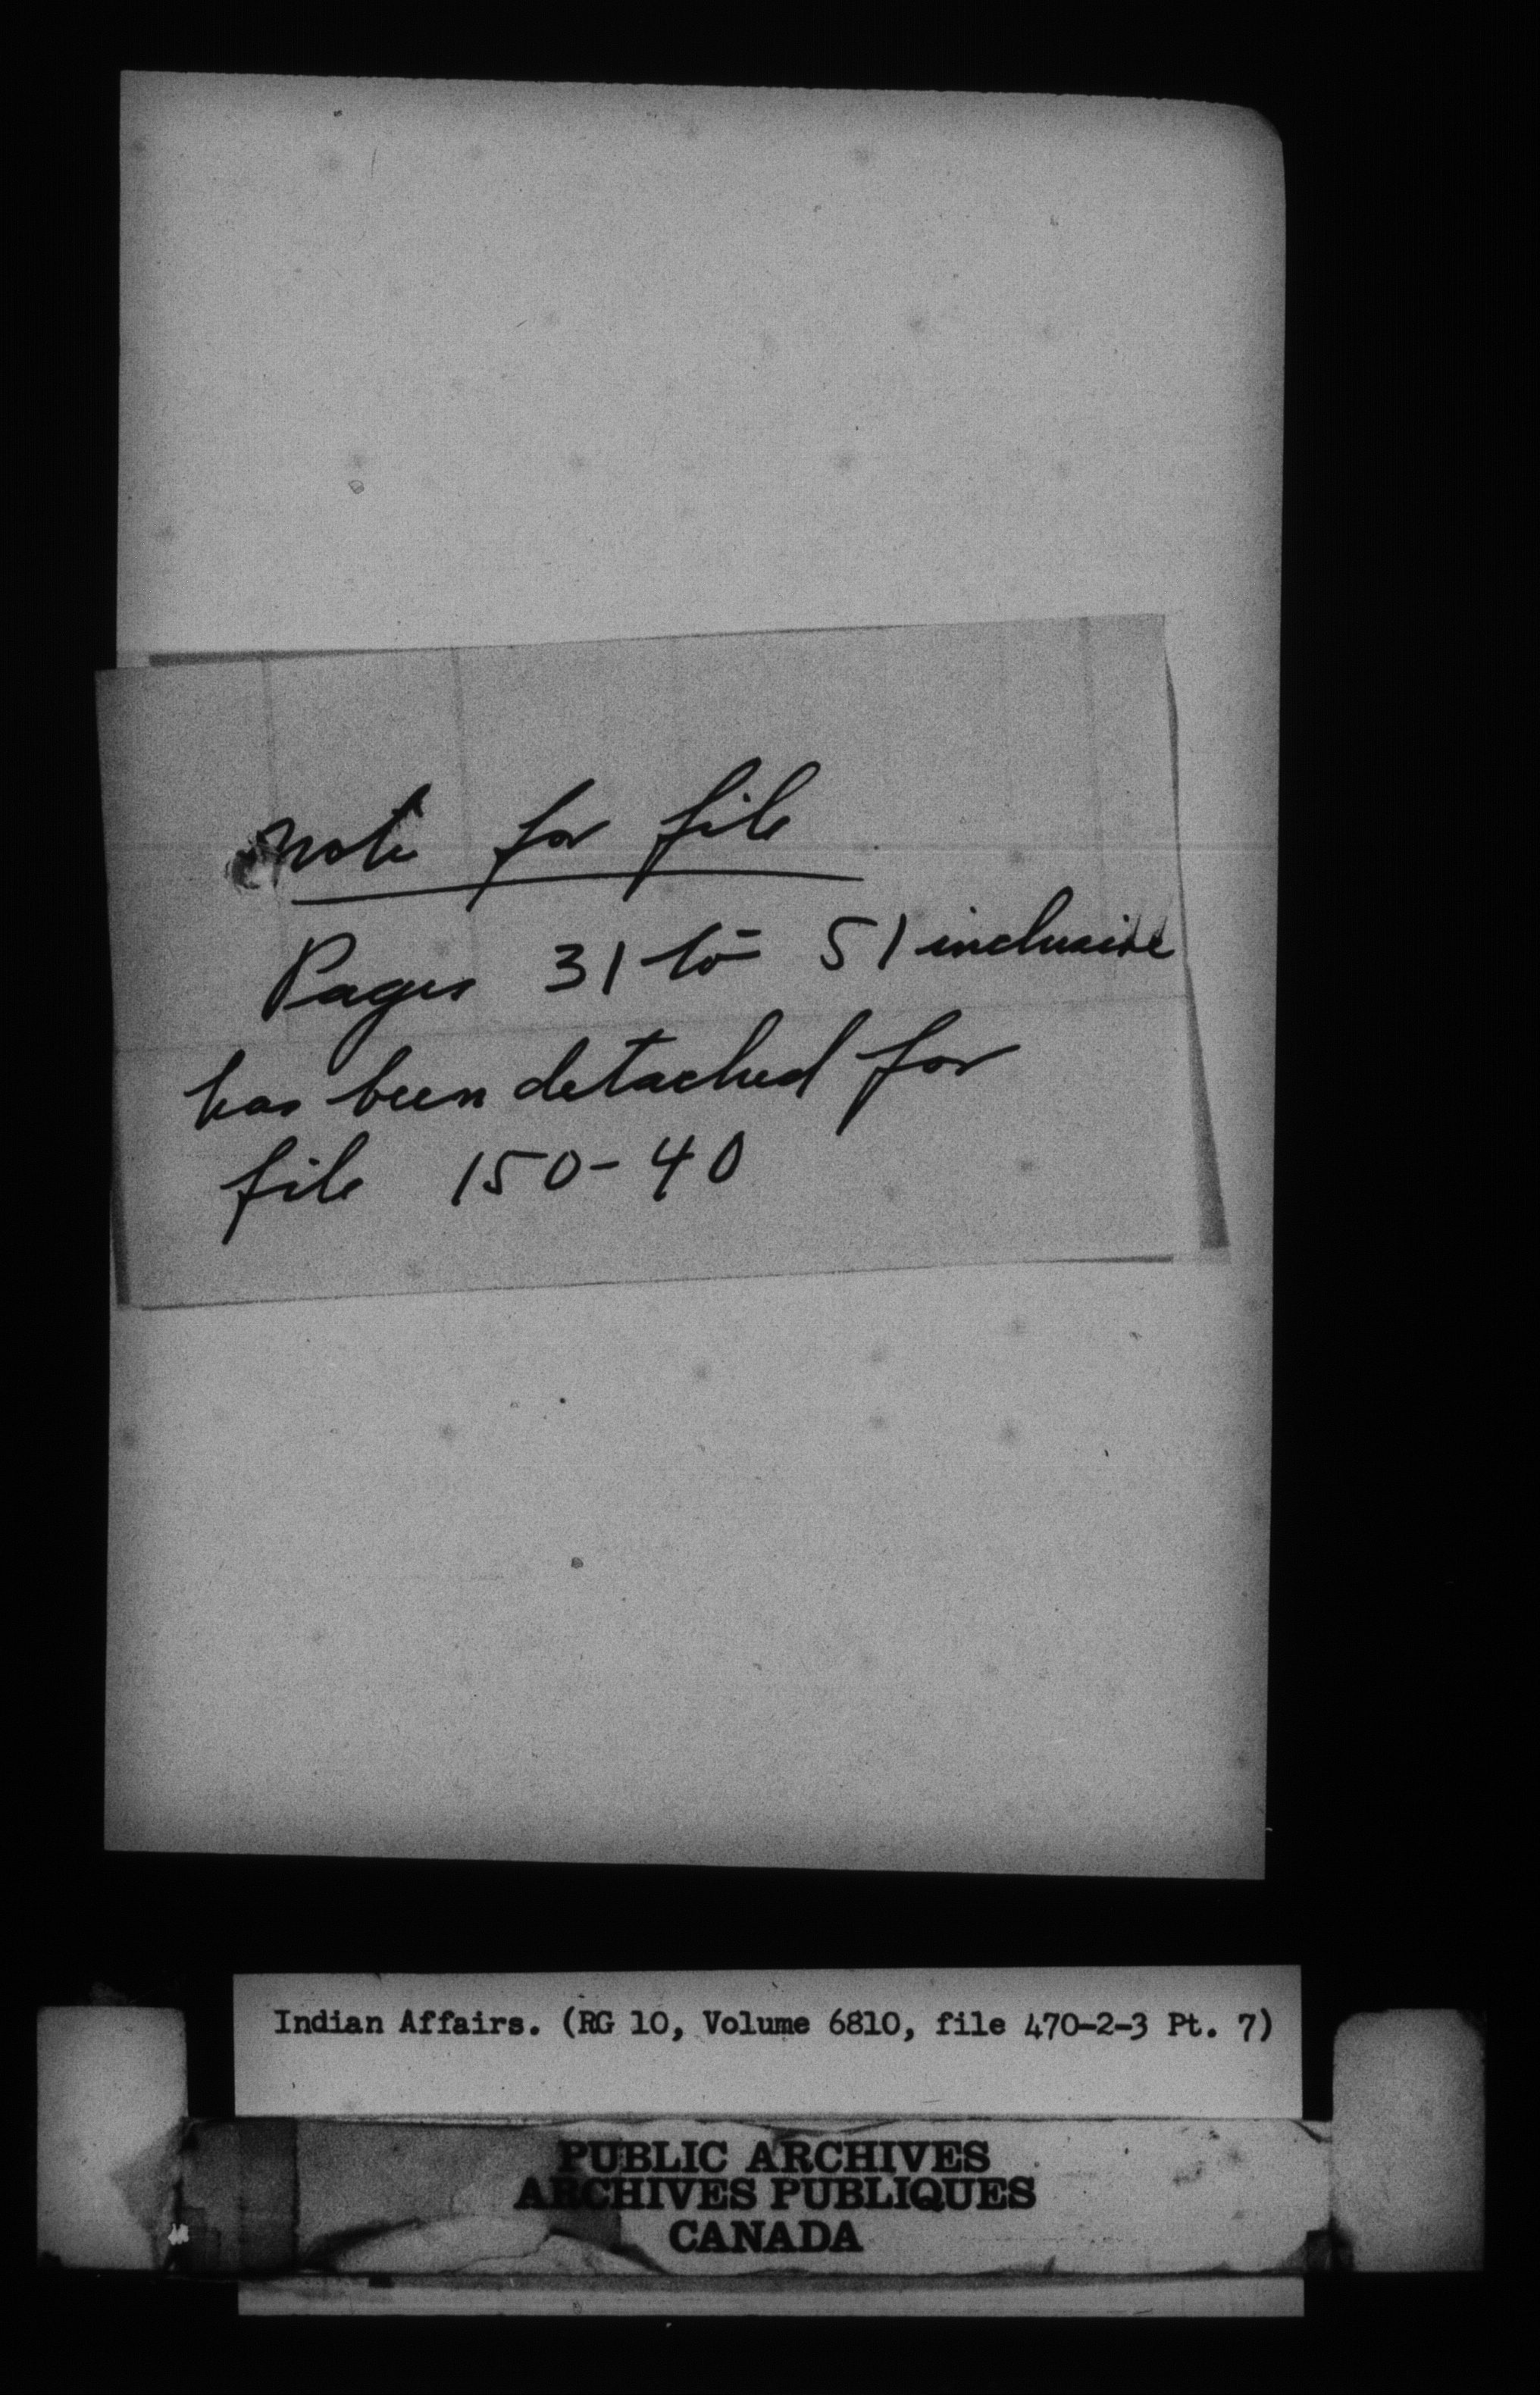 Note for file
Pages 31 to 51 inclusive
has been detached for
file 150-40
Indian Affairs. (RG 10, Volume 6810, file 470-2-3 Pt. 7)
PUBLIC ARCHIVES
ARCHIVES PUBLIQUES
CANADA